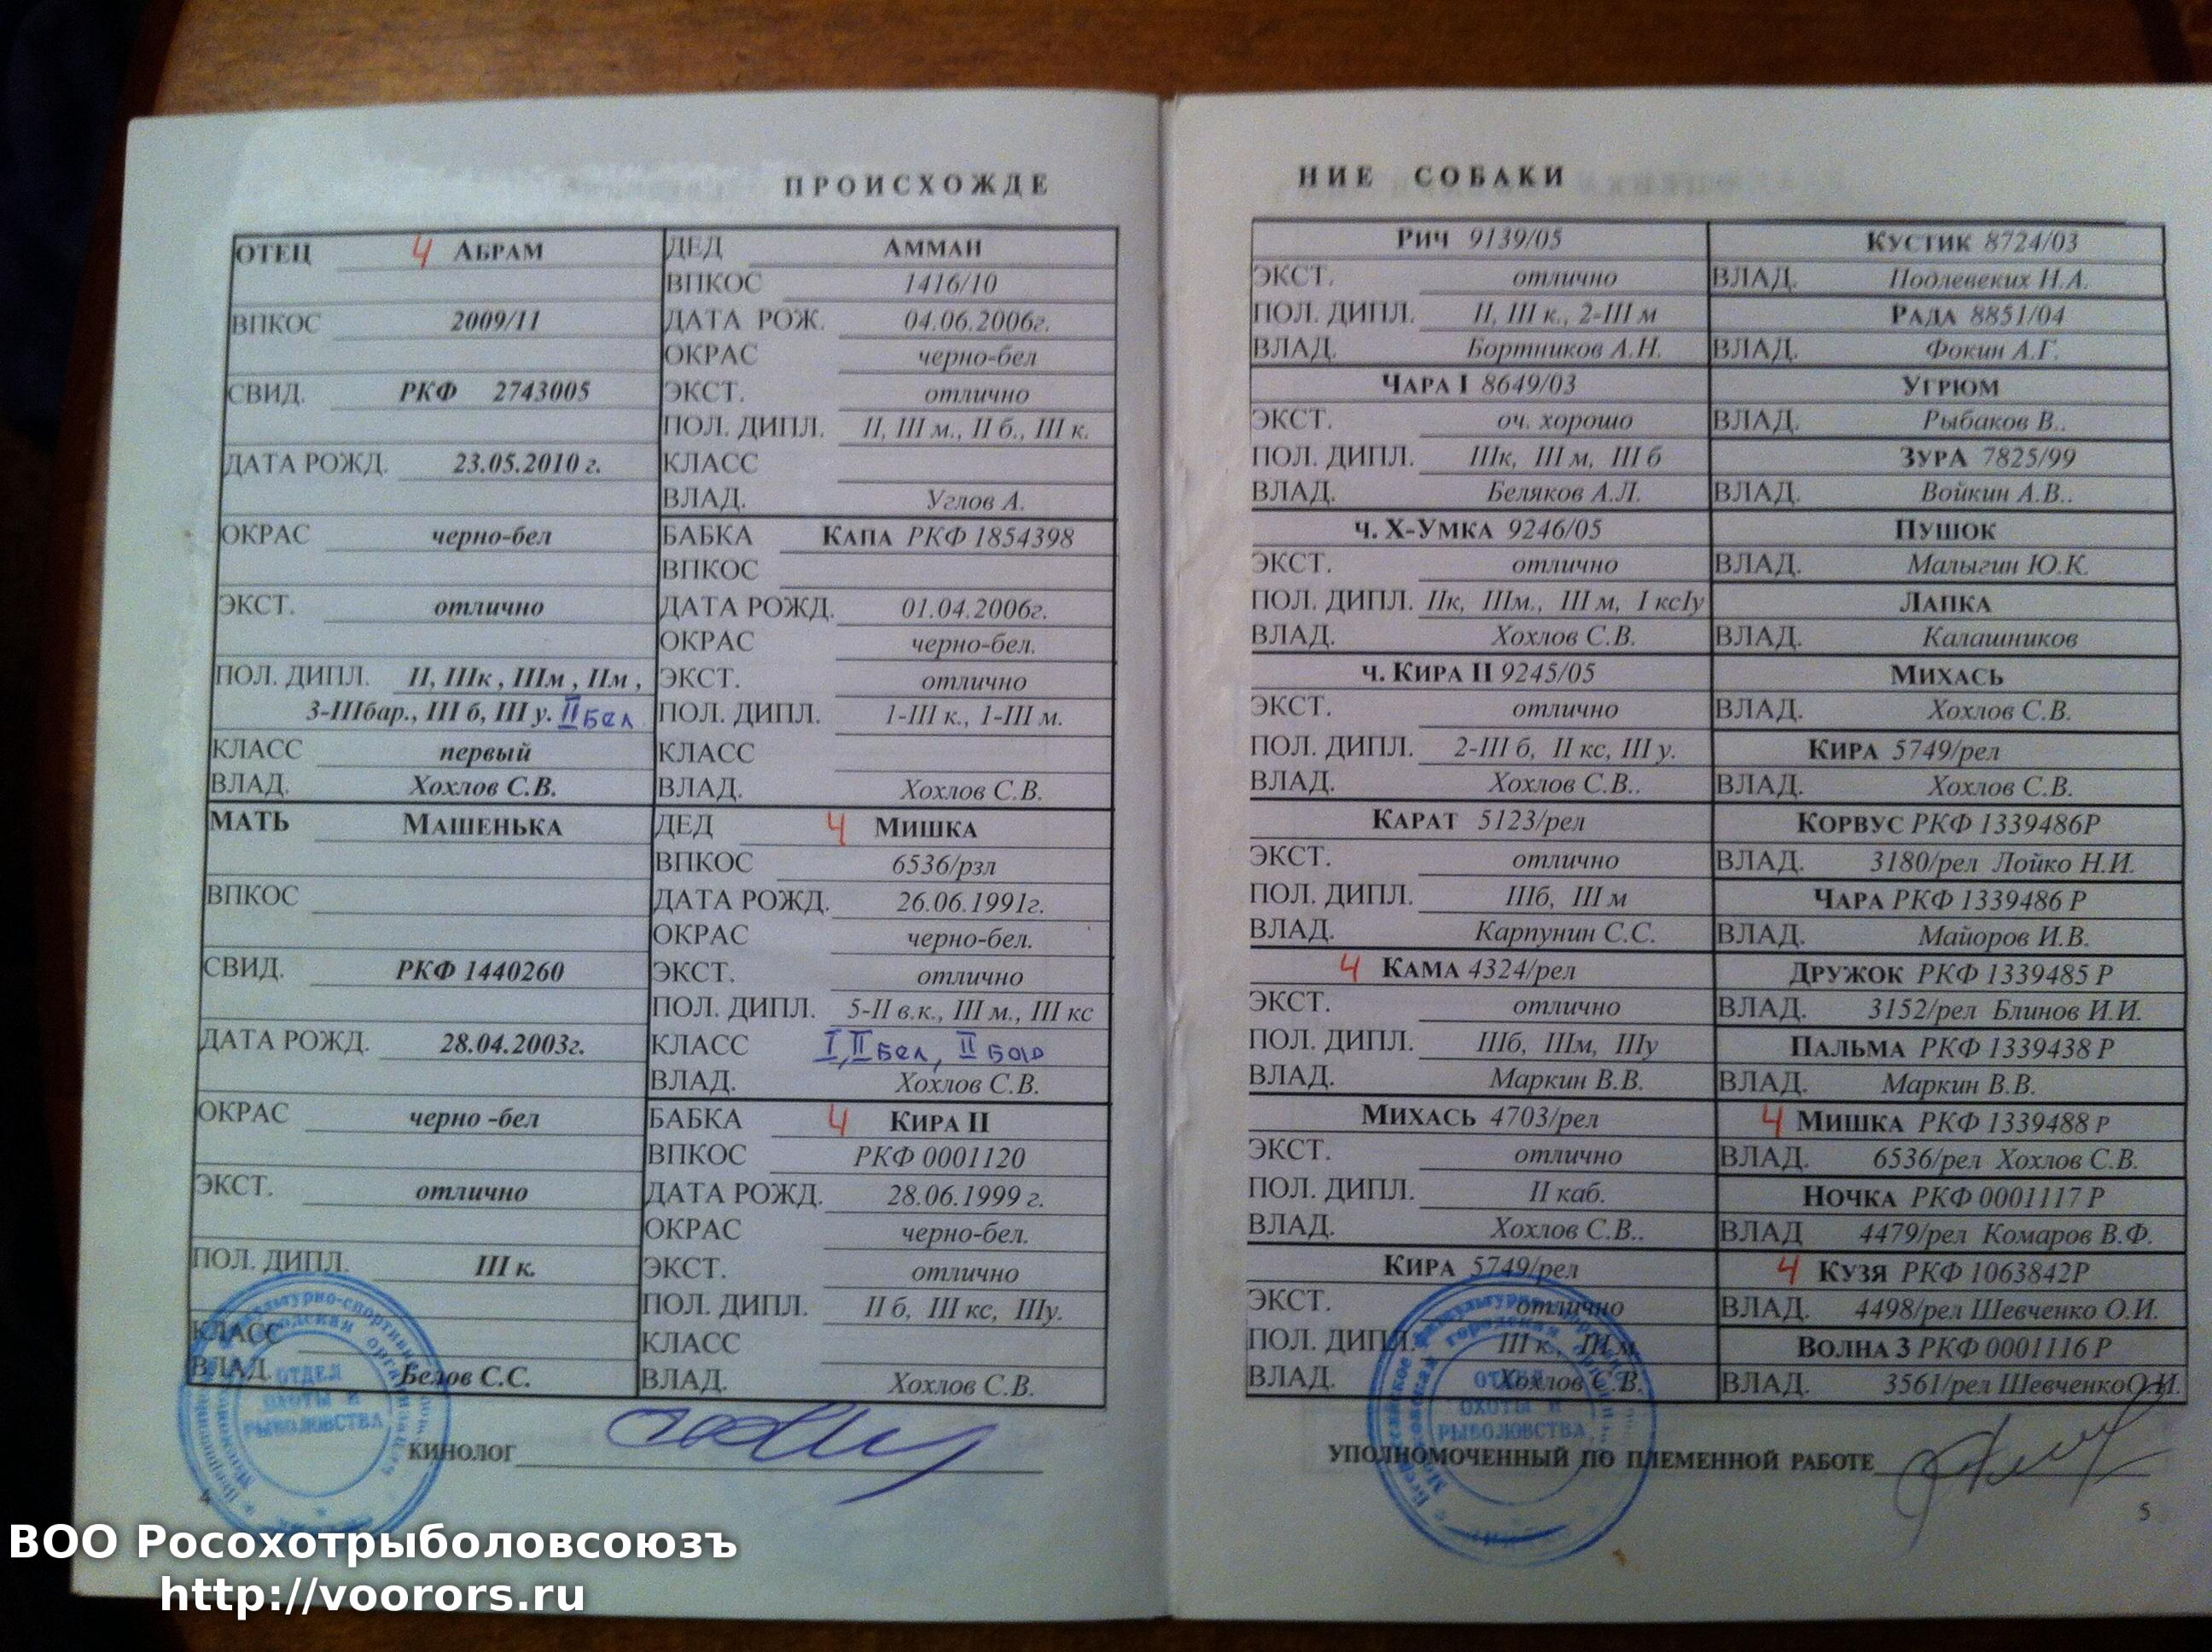 ПРОИСХОЖДЕ
ОТЕЦ Ч АБРАМ
ВПКОС 2009/11
СВИД. РКФ 2743005
ДАТА РОЖД. 23.05.2010 г.
ОКРАС черно-бел
ЭКСТ. отлично
ПОЛ. ДИПЛ. II, IIIк , IIIм , IIм ,
3-IIIбар., III б, III у. II бел
КЛАСС первый
ВЛАД. Хохлов С.В.
МАТЬ МАШЕНЬКА
ВПКОС
СВИД. РКФ 1440260
ДАТА РОЖД. 28.04.2003г.
ОКРАС черно -бел
ЭКСТ. отлично
ПОЛ. ДИПЛ. III к.
КЛАСС
ВЛАД. Белов С.С.
ДЕД АММАН
ВПКОС 1416/10
ДАТА РОЖ. 04.06.2006г.
ОКРАС черно-бел
ЭКСТ. отлично
ПОЛ. ДИПЛ. II, III м., II б., III к.
КЛАСС
ВЛАД. Углов А.
БАБКА КАПА РКФ 1854398
ВПКОС
ДАТА РОЖД. 01.04.2006г.
ОКРАС черно-бел.
ЭКСТ. отлично
ПОЛ. ДИПЛ. 1-III к., 1-III м.
КЛАСС
ВЛАД. Хохлов С.В.
ДЕД Ч МИШКА
ВПКОС 6536/рзл
ДАТА РОЖД. 26.06.1991г.
ОКРАС черно-бел.
ЭКСТ. отлично
ПОЛ. ДИПЛ. 5-II в.к., III м., III кс
КЛАСС I, II бел, II
ВЛАД. Хохлов С.В.
БАБКА Ч КИРА II
ВПКОС РКФ 0001120
ДАТА РОЖД. 28.06.1999 г.
ОКРАС черно-бел.
ЭКСТ. отлично
ПОЛ. ДИПЛ. II б, III кс, IIIу.
КЛАСС
ВЛАД. Хохлов С.В.
КИНОЛОГ
ОТДЕЛ
ОХОТЫ И
РЫБОЛОВСТВА
4
НИЕ СОБАКИ
РИЧ 9139/05
ЭКСТ. отлично
ПОЛ. ДИПЛ. II, III к., 2-III м
ВЛАД. Бортников А.Н.
ЧАРА I 8649/03
ЭКСТ. оч. хорошо
ПОЛ. ДИПЛ. IIIк, III м, III б
ВЛАД. Беляков А.Л.
ч. Х-УМКА 9246/05
ЭКСТ. отлично
ПОЛ. ДИПЛ. IIк, IIIм., III м, I ксIу
ВЛАД. Хохлов С.В.
ч. КИРА II 9245/05
ЭКСТ. отлично
ПОЛ. ДИПЛ. 2-III б, II кс, III у.
ВЛАД. Хохлов С.В..
КАРАТ 5123/рел
ЭКСТ. отлично
ПОЛ. ДИПЛ. IIIб, III м
ВЛАД. Карпунин С.С.
Ч КАМА 4324/рел
ЭКСТ. отлично
ПОЛ. ДИПЛ. IIIб, IIIм, IIIу
ВЛАД. Маркин В.В.
МИХАСЬ 4703/рел
ЭКСТ. отлично
ПОЛ. ДИПЛ. II каб.
ВЛАД. Хохлов С.В..
КИРА 5749/рел
ЭКСТ. отлично
ПОЛ. ДИПЛ. III к., III м
ВЛАД. Хохлов С.В.
КУСТИК 8724/03
ВЛАД. Подлевских Н.А.
РАДА 8851/04
ВЛАД. Фокин А.Г.
УГРЮМ
ВЛАД. Рыбаков В..
ЗУРА 7825/99
ВЛАД. Войкин А.В..
ПУШОК
ВЛАД. Малыгин Ю.К.
ЛАПКА
ВЛАД. Калашников
МИХАСЬ
ВЛАД. Хохлов С.В.
КИРА 5749/рел
ВЛАД. Хохлов С.В.
КОРВУС РКФ 1339486Р
ВЛАД. 3180/рел Лойко Н.И.
ЧАРА РКФ 1339486 Р
ВЛАД. Майоров И.В.
ДРУЖОК РКФ 1339485 Р
ВЛАД. 3152/рел Блинов И.И.
ПАЛЬМА РКФ 1339438 Р
ВЛАД. Маркин В.В.
Ч МИШКА РКФ 1339488 Р
ВЛАД. 6536/рел Хохлов С.В.
НОЧКА РКФ 0001117 Р
ВЛАД 4479/рел Комаров В.Ф.
Ч КУЗЯ РКФ 1063842Р
ВЛАД. 4498/рел Шевченко О.И.
ВОЛНА 3 РКФ 0001116 Р
ВЛАД. 3561/рел ШевченкоО.И.
ОТДЕЛ
ОХОТЫ И
РЫБОЛОВСТВА
УПОЛНОМОЧЕННЫЙ ПО ПЛЕМЕННОЙ РАБОТЕ
5
ВОО Росохотрыболовсоюзъ
http://voorors.ru